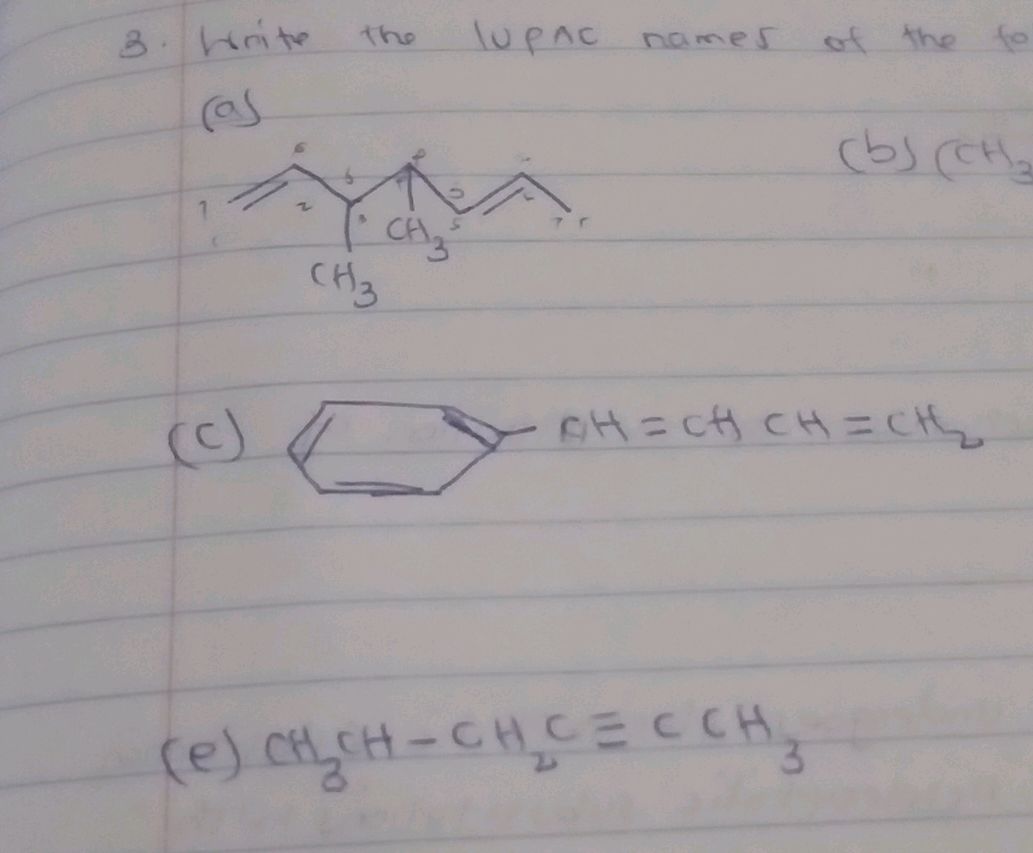 3. Write the IUPAC names of the fo
(a)
(b) (CH3
1 2
CH3
CH3
(c) CH = CH CH = CH2
(e) CH3CH - CH2C ≡ C CH3